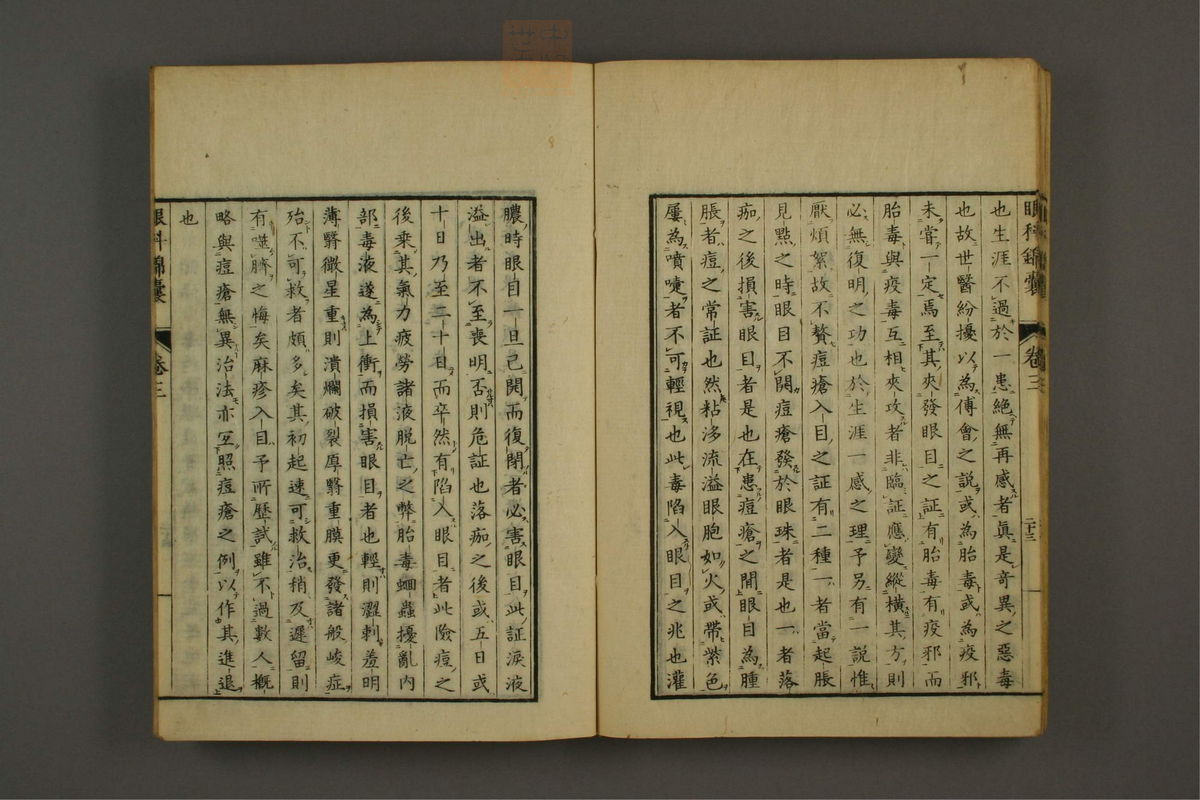 眼科錦囊 卷三 二十三
也生涯不過於一患絕無再感者眞是奇異之惡毒
也故世醫紛擾以為傅會之說或為胎毒或為疫邪
未嘗一定焉至其夾發眼目之証有胎毒有疫邪而
胎毒與疫毒互相夾攻者非臨証應變縱橫其方則
必無復明之功也於生涯一感之理予另有一說惟
厭煩絮故不贅痘瘡入目之証有二種一者當起脹
見點之時眼目不開痘瘡發於眼珠者是也一者落
痂之後損害眼目者是也在患痘瘡之間眼目為腫
脹者痘之常証也然粘涕流溢眼胞如火或帶紫色
屢為噴嚏者不可輕視也此毒陷入眼目之兆也灌
膿時眼目一旦已開而復閉者必害眼目此証淚液
溢出者不至喪明否則危証也落痂之後或五日或
十日乃至二十日而卒然有陷入眼目者此險痘之
後乘其氣力疲勞諸液脫亡之弊胎毒蛔蟲擾亂內
部毒液遂為上衝而損害眼目者也輕則澀刺羞明
薄翳微星重則潰爛破裂厚翳重膜更發諸般峻症
殆不可救者頗多矣其初起速可救治稍及遲留則
有噬臍之悔矣麻疹入目予所歷試雖不過數人概
略與痘瘡無異治法亦互照痘瘡之例以作其進退
也
眼科錦囊 卷三